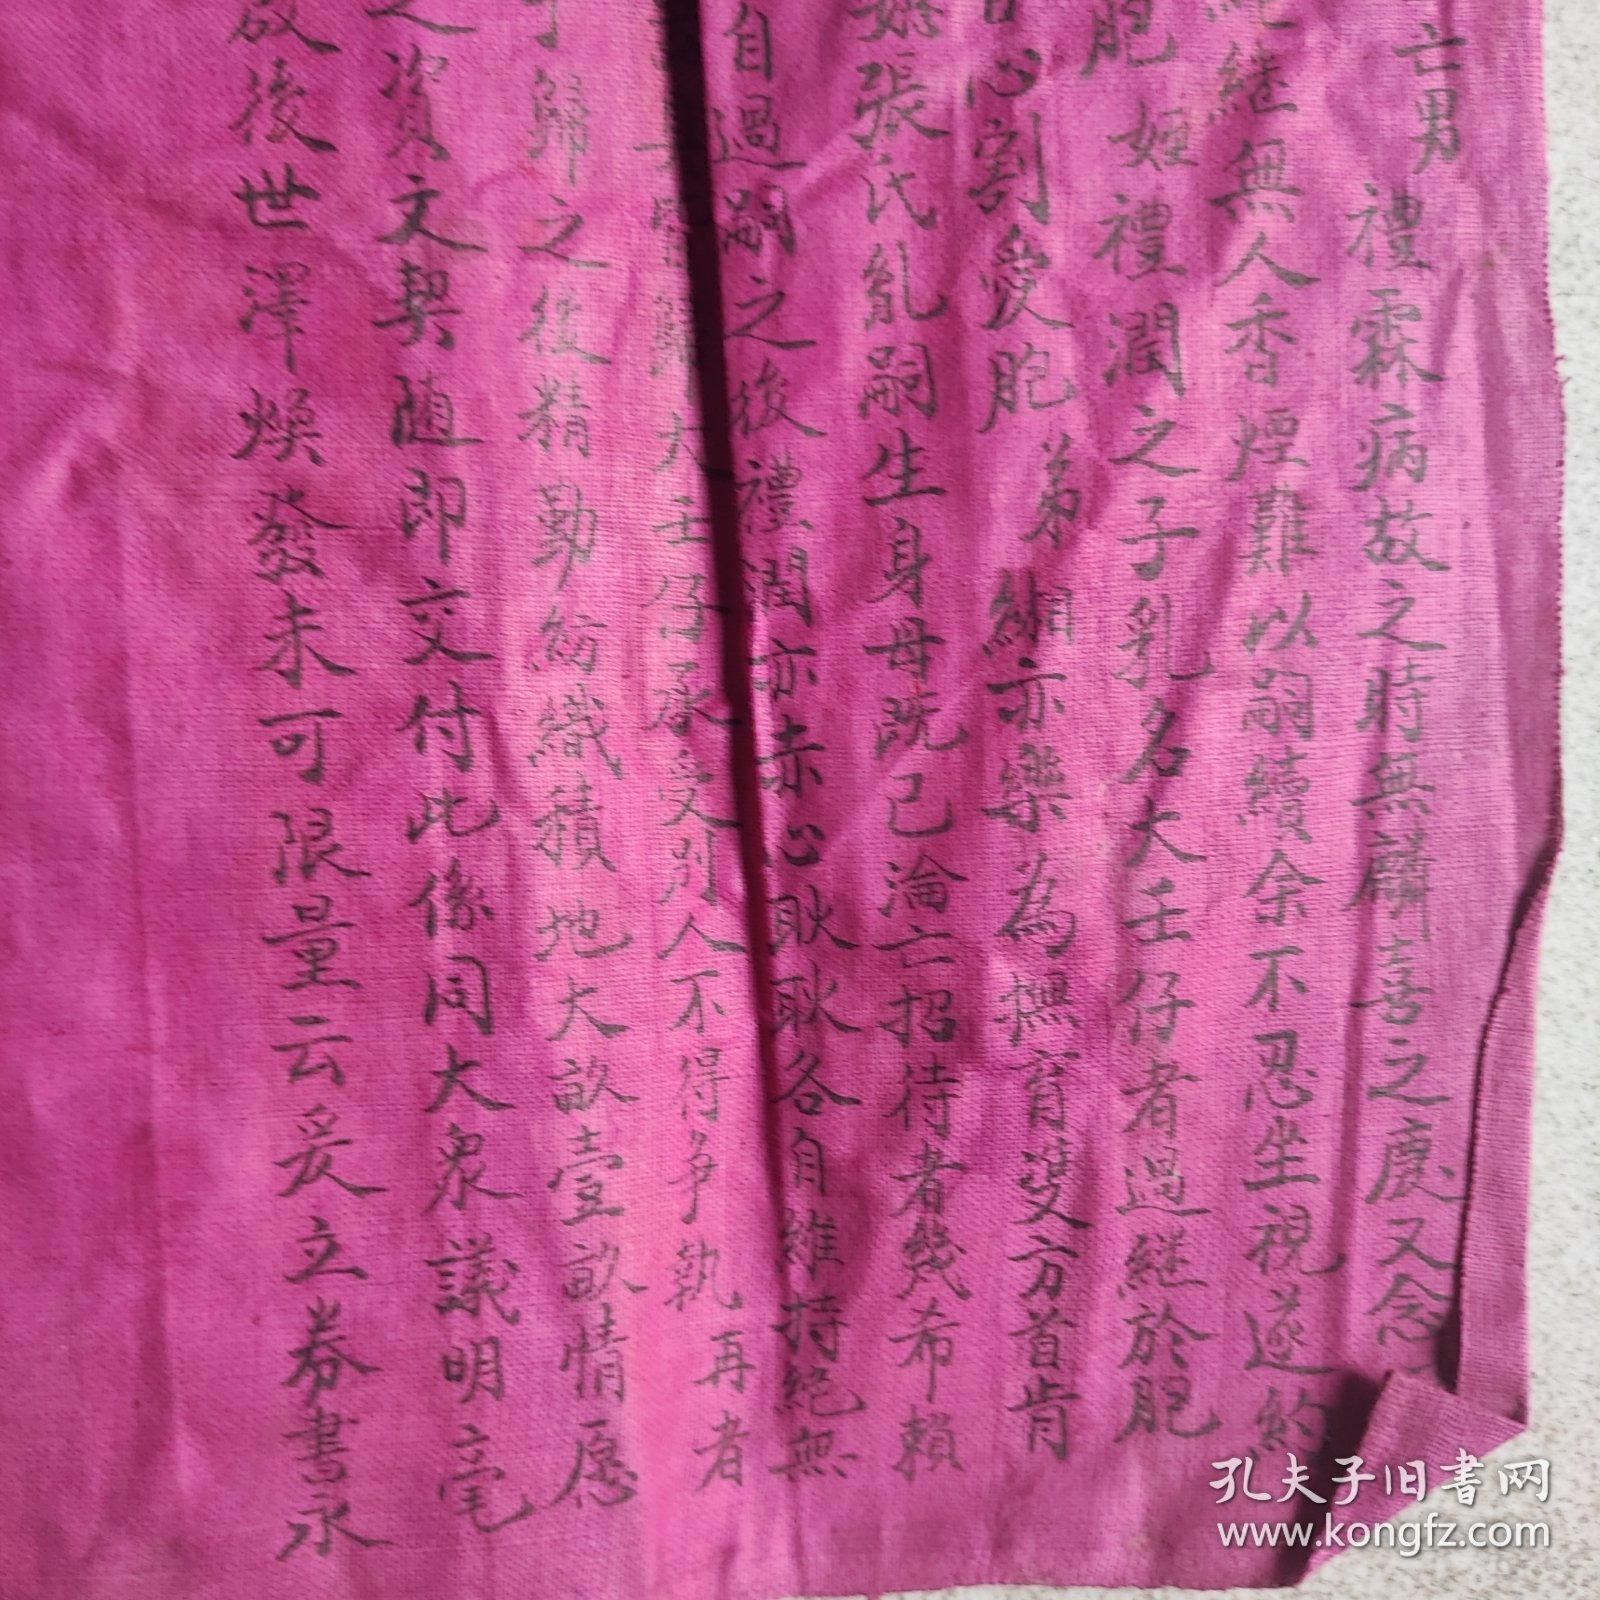 亡男禮霖病故之時無麟喜之慶又念
繼無人香煙難以嗣續余不忍坐視遂約
胞姪禮潤之子乳名大壬仔者過繼於胞
心割愛胞弟綳亦樂為撫育雙方首肯
張氏亂嗣生身母既已淪亡招待者幾希賴
自過嗣之後禮潤亦赤心耿耿各自維持絕無
歸大壬仔承受別人不得争執再者
歸之後精勤紡織積地大畝壹畝情愿
之資文契随即交付此係同大衆議明毫
後世澤煥發未可限量云爰立券書永
孔夫子旧书网
www.kongfz.com